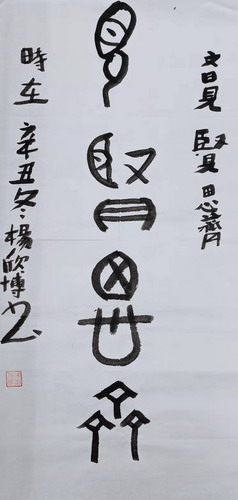 文曰見賢思齊
見賢思齊
時在辛丑冬楊欣博书